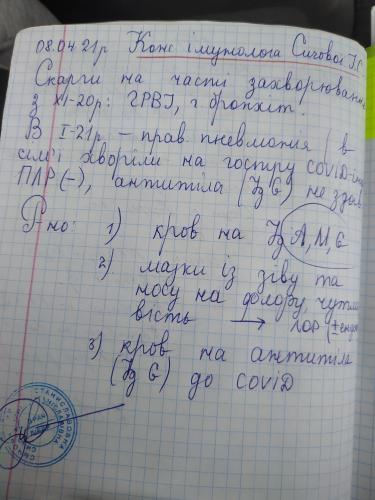 08.04 21р Конс імунолога Сигової І.С
Скарги на часті захворювання
З XI-20р: ГРВІ, г бронхіт.
В I-21р. – прав пневмонія / в
сім'ї хворіли на гостру COVID-
ПЛР (-), антитіла (Ig G) не
Р-но: 1) кров на Ig A, M, G
2) мазки із зіву та
носу на флору, чутли
вість → ЛОР
3) кров на антитіла
(Ig G) до COVID